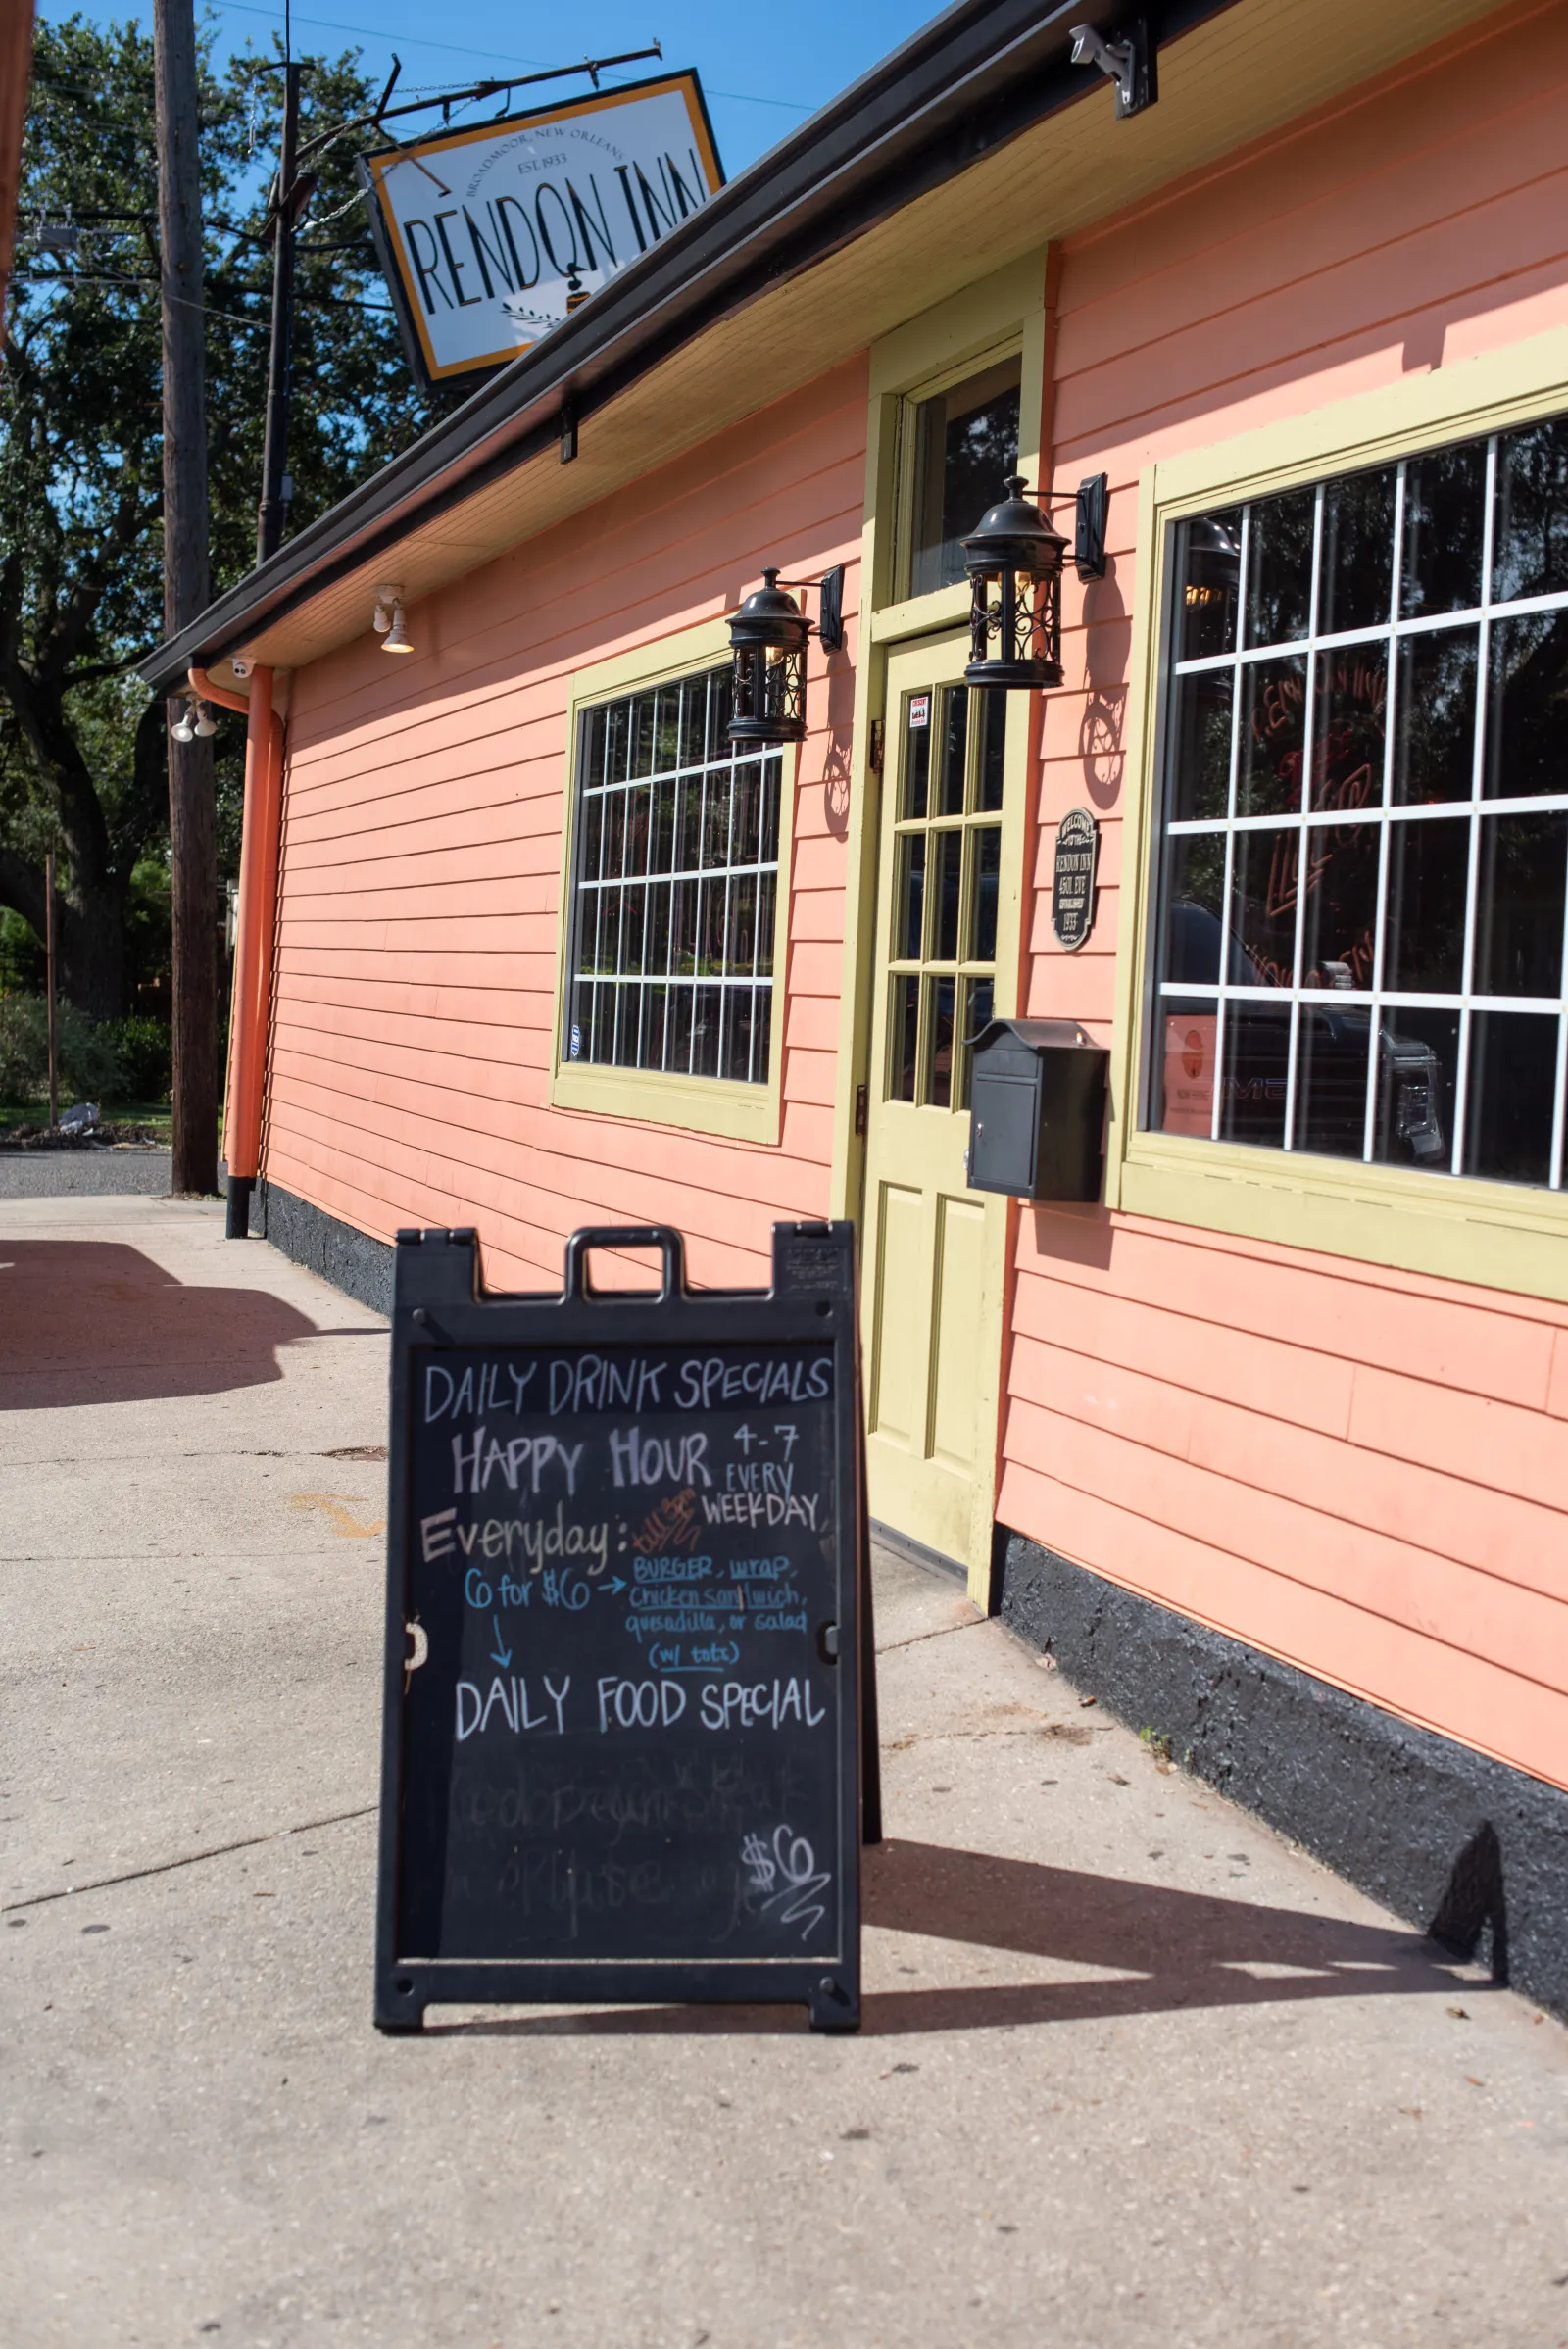 BROADMOOR, NEW ORLEANS
EST. 1933
RENDON INN
WELCOME
TO THE
RENDON INN
4501 EVE
ESTABLISHED
1933
DAILY DRINK SPECIALS
HAPPY HOUR 4-7
EVERY
WEEKDAY
Everyday: till 3pm
6 for $6 → BURGER, wrap,
Chicken sandwich,
quesadilla, or salad
(w/ tots)
DAILY FOOD SPECIAL
$6